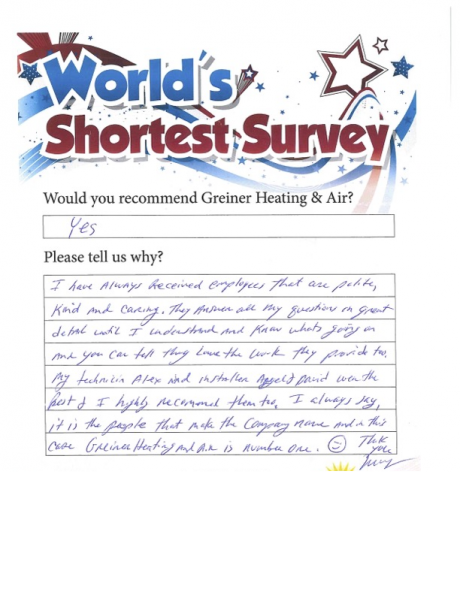 World's
Shortest Survey
Would you recommend Greiner Heating & Air?
Yes
Please tell us why?
I have Always Received employees that are polite,
Kind and Caring. They Answer all my questions in great
detail until I understand and Know whats going on
And you Can tell they Love the work they provide too.
My technician Alex and installer David were the
Best & I highly recommend them too. I always say,
it is the people that make the Company name And in this
case Greiner Heating And Air is Number One. ☺ Thank
you